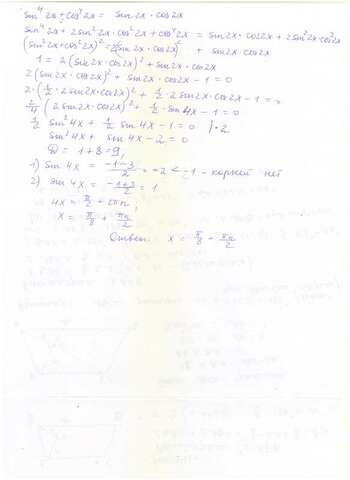 sin⁴2x + cos⁴2x = sin2x · cos2x
sin⁴2x + 2sin²2x · cos²2x + cos⁴2x = sin2x · cos2x + 2sin²2x · cos²2x
(sin²2x + cos²2x)² = 2(sin2x · cos2x)² + sin2x · cos2x
1 = 2(sin2x · cos2x)² + sin2x · cos2x
2(sin2x · cos2x)² + sin2x · cos2x - 1 = 0
2 · (½ · 2sin2x · cos2x)² + ½ · 2sin2x · cos2x - 1 = 0
2/4 (2sin2x · cos2x)² + ½ · sin4x - 1 = 0
½ sin²4x + ½ sin4x - 1 = 0 | · 2
sin²4x + sin4x - 2 = 0
D = 1 + 8 = 9,
1) sin4x = (-1-3)/2 = -2 < -1 - корней нет
2) sin4x = (-1+3)/2 = 1
4x = π/2 + 2πn,
x = π/8 + πn/2
Ответ: x = π/8 + πn/2